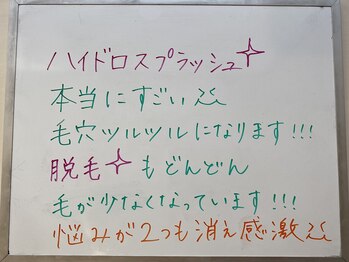 ハイドロスプラッシュ✧
本当にすごい
毛穴ツルツルになります!!!
脱毛✧もどんどん
毛が少なくなっています!!!
悩みが2つも消え感激